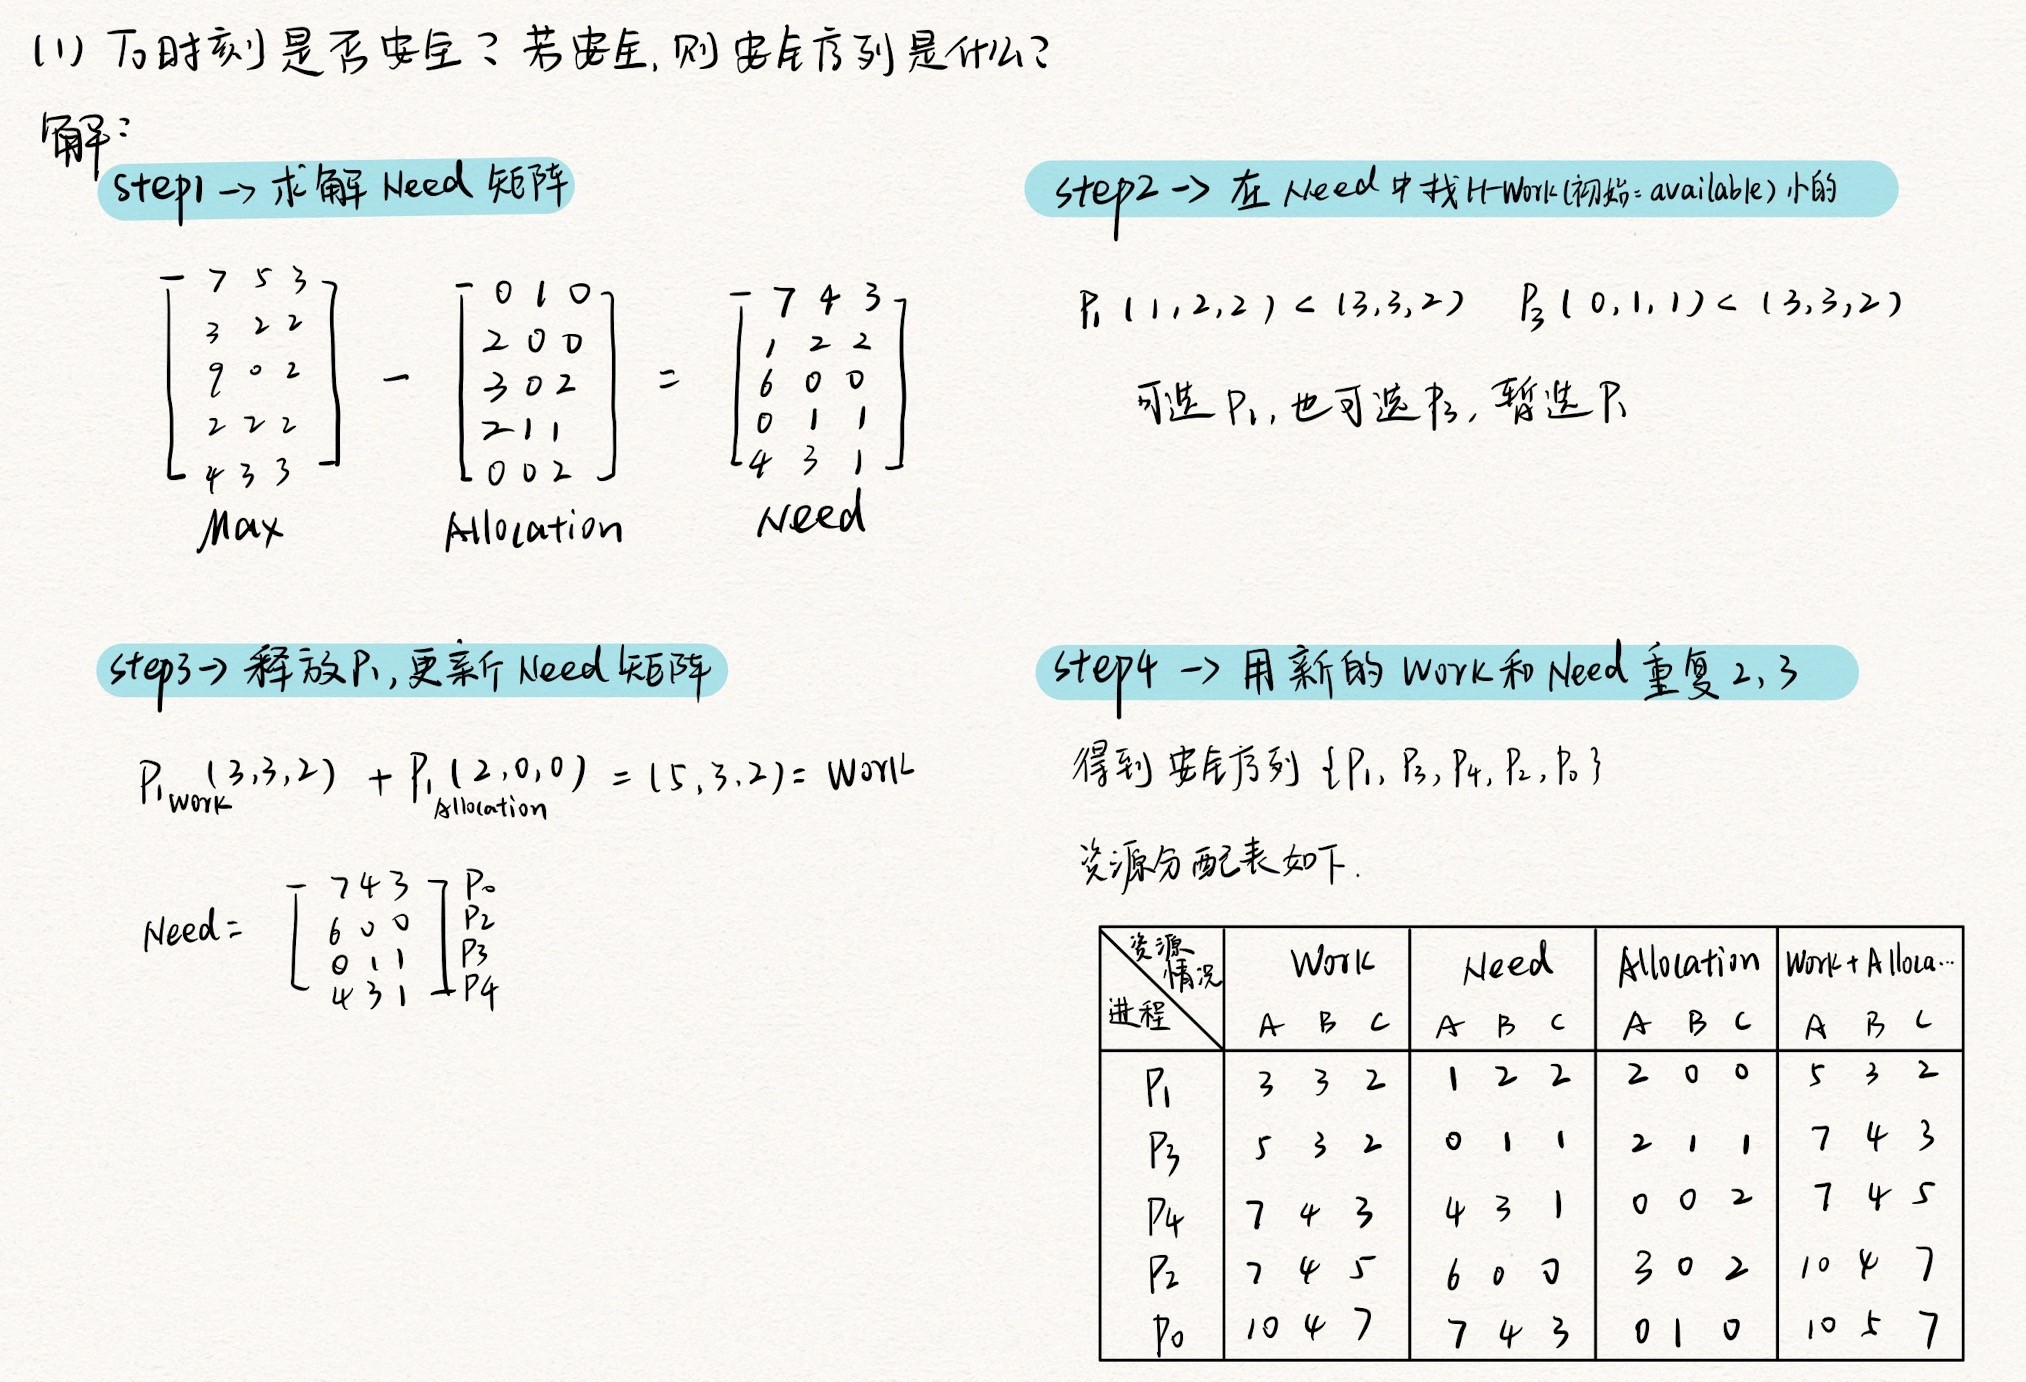 (1) T0时刻是否安全？若安全,则安全序列是什么？
解：
step1 → 求解 Need 矩阵
7 5 3
3 2 2
9 0 2
2 2 2
4 3 3
Max
-
0 1 0
2 0 0
3 0 2
2 1 1
0 0 2
Allocation
=
7 4 3
1 2 2
6 0 0
0 1 1
4 3 1
Need
step2 → 在 Need 中找比Work(初始=available)小的
P1 (1,2,2) < (3,3,2) P3 (0,1,1) < (3,3,2)
可选 P1, 也可选 P3, 暂选 P1
step3 → 释放P1, 更新 Need 矩阵
P1 Work (3,3,2) + P1 Allocation (2,0,0) = (5,3,2) = Work
Need =
7 4 3 P0
6 0 0 P2
0 1 1 P3
4 3 1 P4
step4 → 用新的 Work 和 Need 重复 2, 3
得到 安全序列 {P1, P3, P4, P2, P0}
资源分配表如下.
资源情况 进程 Work Need Allocation Work + Alloca...
A B C A B C A B C A B C
P1 3 3 2 1 2 2 2 0 0 5 3 2
P3 5 3 2 0 1 1 2 1 1 7 4 3
P4 7 4 3 4 3 1 0 0 2 7 4 5
P2 7 4 5 6 0 0 3 0 2 10 4 7
P0 10 4 7 7 4 3 0 1 0 10 5 7